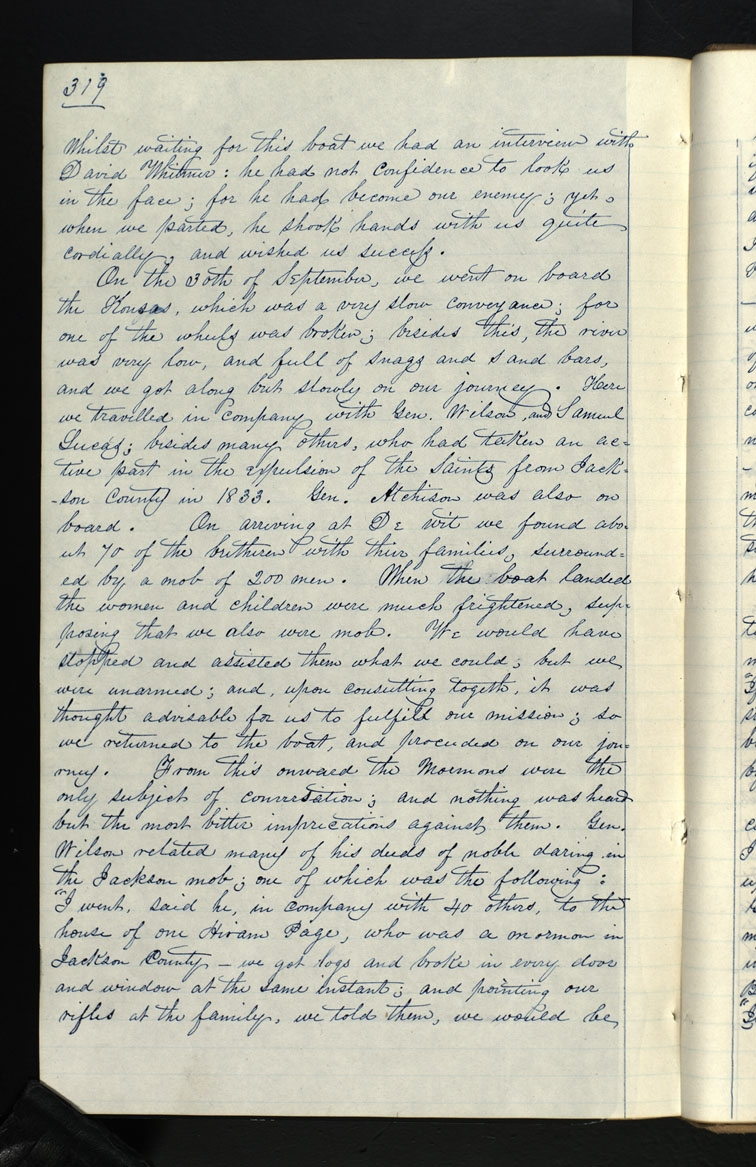 319
Whilst waiting for this boat we had an interview with
David Whitmer: he had not confidence to look us
in the face; for he had become our enemy; yet,
when we parted, he shook hands with us quite
cordially, and wished us success.
On the 30th of September, we went on board
the Kansas, which was a very slow conveyance; for
one of the wheels was broken; besides this, the river
was very low, and full of snags and sand bars,
and we got along but slowly on our journey. Here
we travelled in company with Gen. Wilson, and Samuel
Lucas; besides many others, who had taken an ac=
tive part in the expulsion of the Saints from Jack-
-son County in 1833. Gen. Atchison was also on
board. On arriving at De Wit we found abo-
ut 70 of the brethren with their families, surround=
ed by a mob of 200 men. When the boat landed
the women and children were much frightened, sup-
posing that we also were mob. We would have
stopped and assisted them what we could; but we
were unarmed; and, upon consulting togeth, it was
thought advisable for us to fulfill our mission; so
we returned to the boat, and proceeded on our jou=
rney. From this onward the Mormons were the
only subject of conversation; and nothing was heard
but the most bitter imprecations against them. Gen.
Wilson related many of his deeds of noble daring in
the Jackson mob; one of which was the following:
"I went, said he, in company with 40 others, to the
house of one Hiram Page, who was a mormon in
Jackson County — we got logs and broke in every door
and window at the same instant; and pointing our
rifles at the family, we told them, we would be